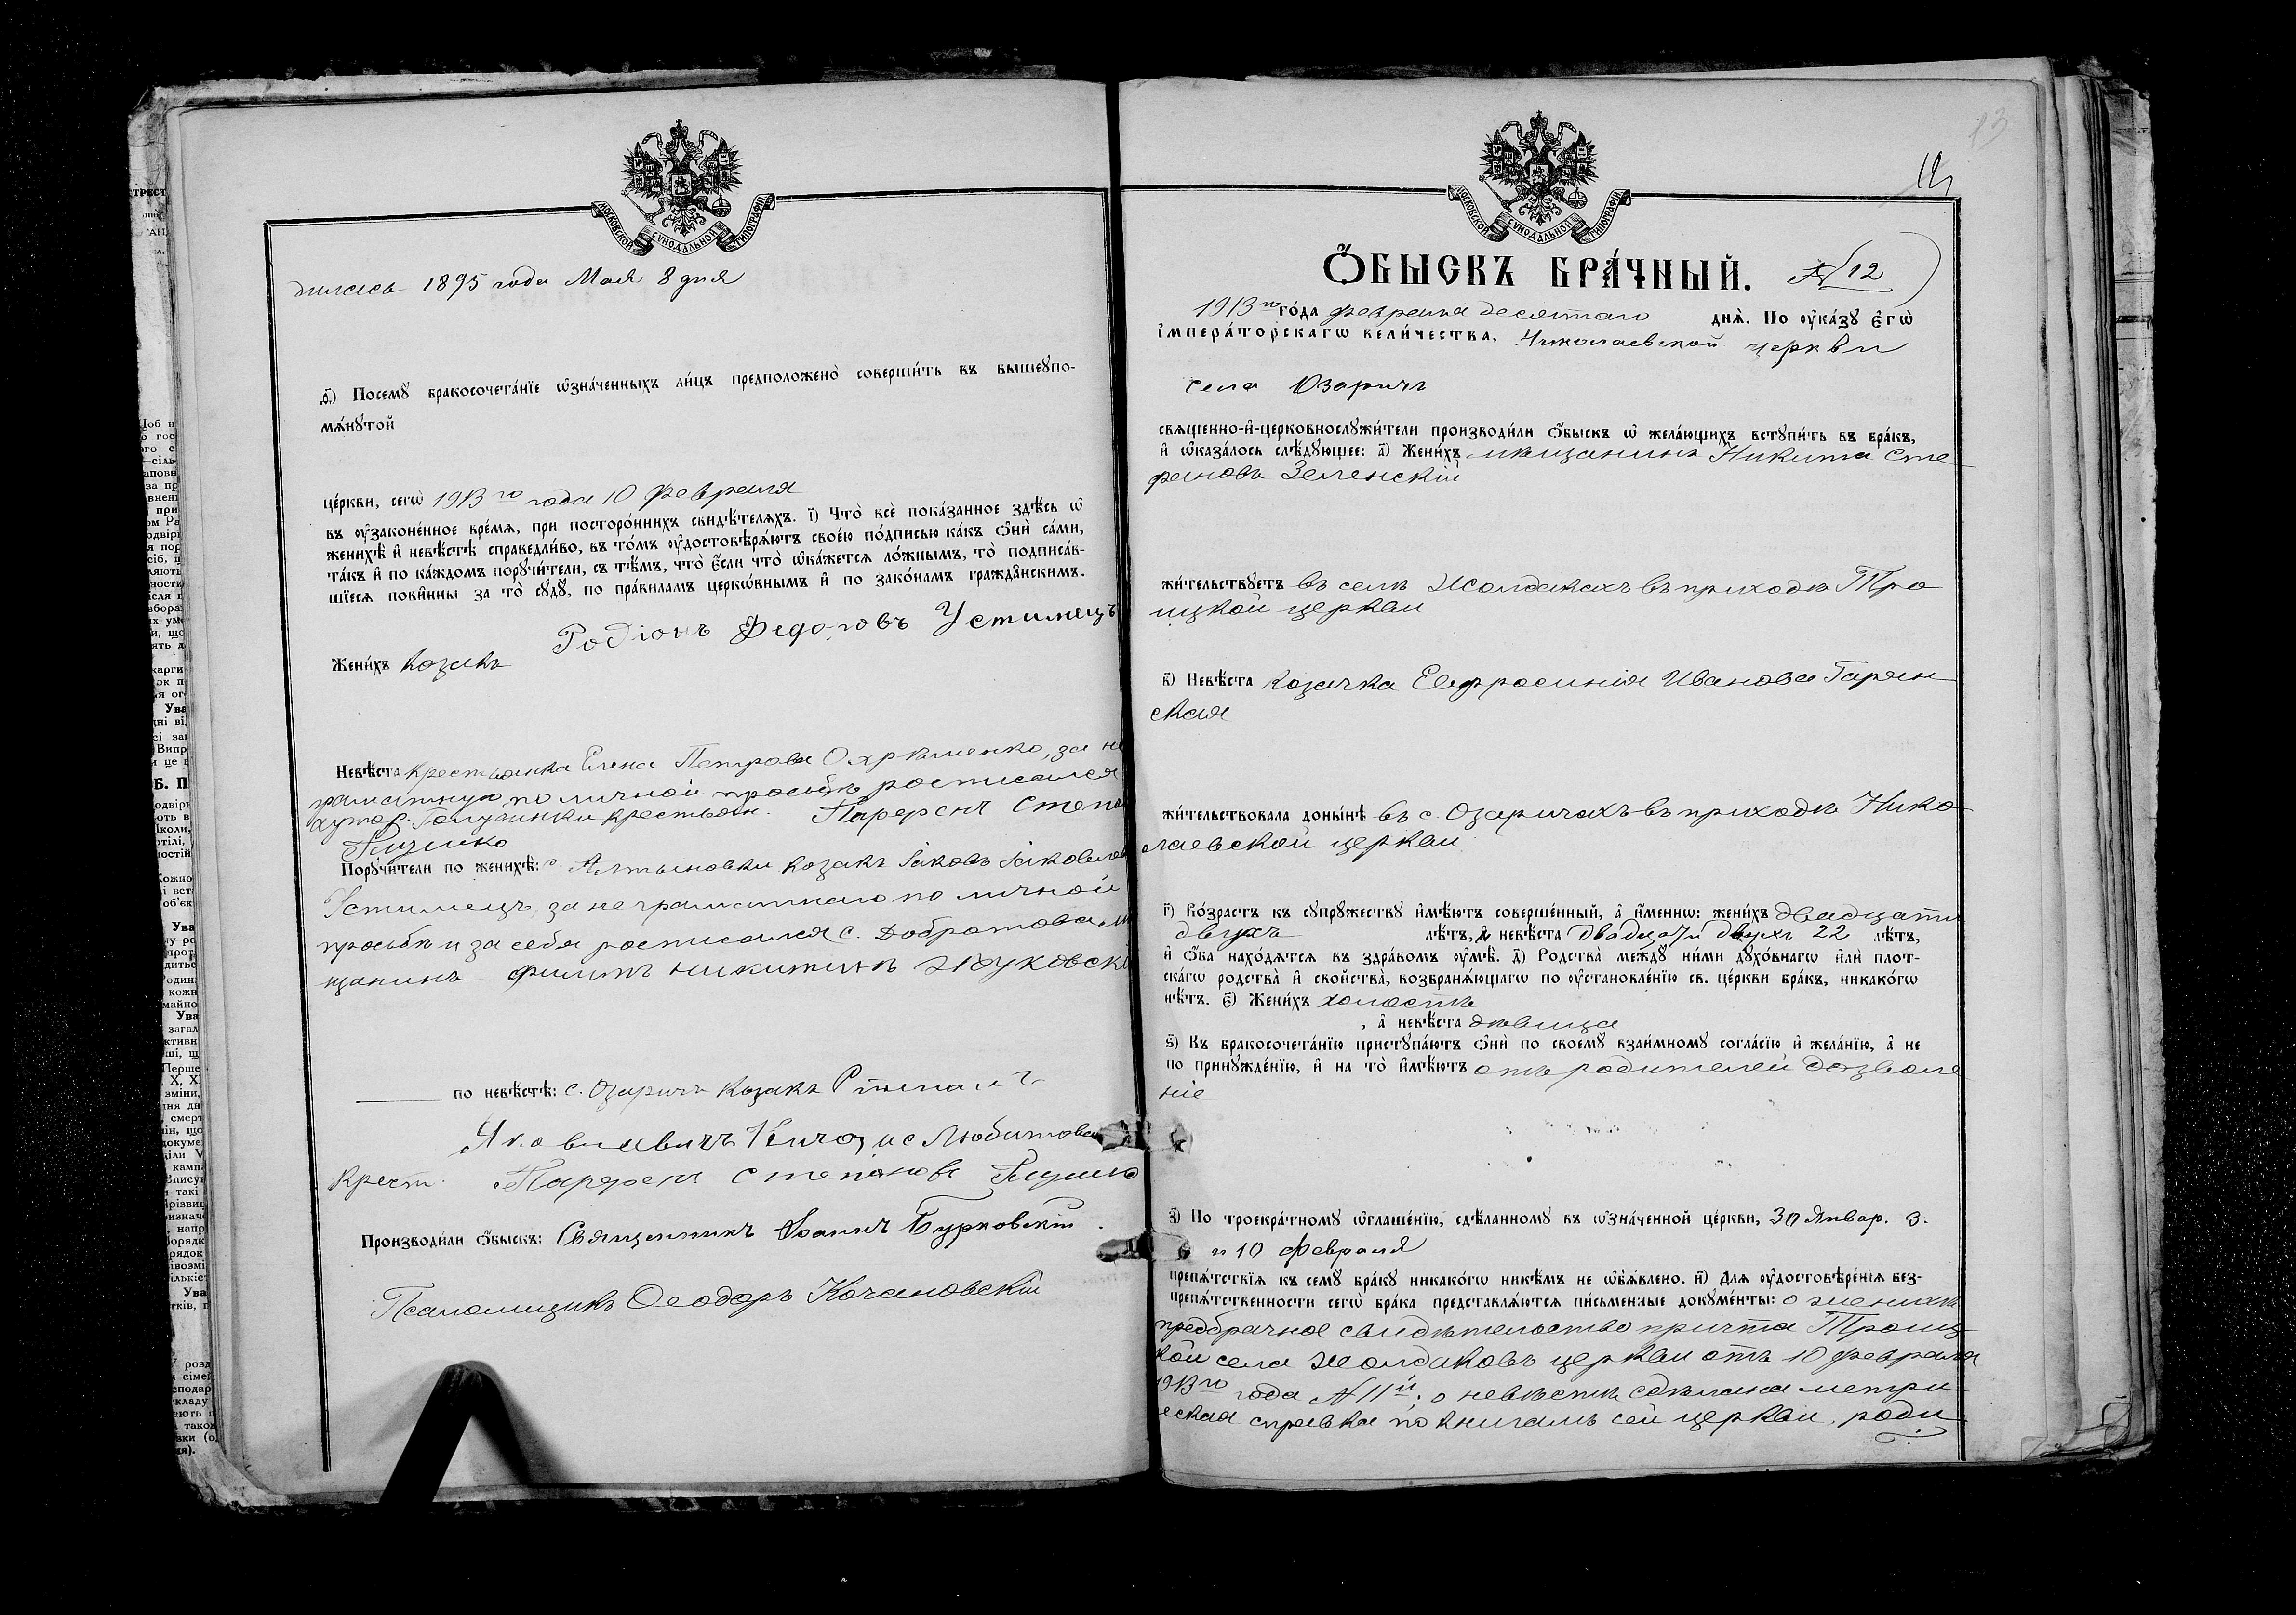 МОСКОВСКОЙ СѴНОДАЛЬНОЙ ТИПОГРАФІИ
дилась 1895 года Мая 8 дня
ѳ҃) Посемꙋ̀ бракосочета́нїе ѡ҆зна́ченныхъ ли́цъ предположено̀ соверши́ть въ вышеꙋпо-
мѧ́нꙋтой
це́ркви, сегѡ̀ 1913го года 10 Февраля
въ ᲂу҆зако́ненное вре́мѧ, при посторо́ннихъ свидѣ́телѧхъ. і҃) Что̀ всѐ пока́занное здѣ́сь ѡ҆
женихѣ̀ и҆ невѣ́стѣ справедли́во, въ то́мъ ᲂу҆достовѣрѧ́ютъ свое́ю по́дписью ка́къ ѻ҆нѝ са́ми,
та́къ и҆ по ка́ждомъ порꙋчи́тели, съ тѣ́мъ, что̀ є҆́сли что̀ ѡ҆ка́жетсѧ ло́жнымъ, то̀ подписа́в-
шїесѧ пови́нны за то̀ сꙋдꙋ̀, по пра́виламъ церкѡ́внымъ и҆ по зако́намъ гражда̑нскимъ.
Родіонъ Федоровъ Устимецъ
Жени́хъ козакъ
Невѣ́ста крестьянка Елена Петрова Охрименко, за не
грамотную, по личной просьбѣ росписался
хутор. крестьян. Парфенъ Степа
Порꙋчи́тели по женихѣ̀: с. Алтыновки козакъ Іаковъ Іаковлев
Устимецъ, за не грамотнаго по личной
просьбѣ и за себя росписался с. Добротова м
щанинъ Филипъ Никитинъ Жуковск
по невѣ́стѣ: с. Озаричъ козакъ
и с Любитова
Крест. Парфенъ Степановъ
Производи́ли ѻ҆́быскъ: Священникъ Іоаннъ Бурковскій
Псаломщикъ Ѳеодоръ Кочановскій
13
12
МОСКОВСКОЙ СѴНОДАЛЬНОЙ ТИПОГРАФІИ
Ѻ҆́БЫСКЪ БРА́ЧНЫЙ. №12
1913го го́да февраля десятаго днѧ̀. По ᲂу҆ка́зꙋ є҆гѡ̀
і҆мпера́торскагѡ вели́чества, Николаевской церкви
села Озаричъ
свѧще́нно-и҆-церковнослꙋжи́тели производи́ли ѻ҆́быскъ ѡ҆ жела́ющихъ встꙋпи́ть въ бра́къ,
и҆ ѡ҆каза́лось слѣ́дꙋющее: а҃) Жени́хъ мѣщанинъ Никита Сте
фановъ Зеленскій
жи́тельствꙋетъ въ селѣ Жолдакахъ въ приходѣ Тро
ицкой церкви
в҃) Невѣ́ста козачка Евфросинія Иванова Гарян
ская
жи́тельствовала доны́нѣ въ с. Озаричахъ въ приходѣ Нико
лаевской церкви
г҃) Во́зрастъ къ сꙋпрꙋ́жествꙋ и҆мѣ́ютъ соверше́нный, а҆ и҆́меннѡ: жени́хъ двадцати
двухъ лѣ́тъ, а҆ невѣ́ста двадцати двухъ 22 лѣ́тъ,
и҆ ѻ҆́ба нахо́дѧтсѧ въ здра́вомъ ᲂу҆мѣ̀. д҃) Родства̀ междꙋ̀ ни́ми дꙋхо́внагѡ и҆лѝ плот-
ска́гѡ родства̀ и҆ сво́йства, возбранѧ́ющагѡ по ᲂу҆становле́нїю св. це́ркви бра́къ, никако́гѡ
нѣ́тъ. є҃) Жени́хъ холостъ
, а҆ невѣ́ста дѣвица
ѕ҃) Къ бракосочета́нїю пристꙋпа́ютъ ѻ҆нѝ по своемꙋ̀ взаи́мномꙋ согла́сїю и҆ жела́нїю, а҆ не
по принꙋжде́нїю, и҆ на то̀ и҆мѣ́ютъ отъ родителей дозволе
ніе
з҃) По троекра́тномꙋ ѡ҆глаше́нїю, сдѣ́ланномꙋ въ ѡ҆зна́ченной це́ркви, 30 Январ. 3.
и 10 Февраля
препѧ́тствїѧ къ семꙋ̀ бра́кꙋ никако́гѡ никѣ́мъ не ѡ҆б̾ѧ́влено. и҃) Длѧ ᲂу҆достовѣре́нїѧ без-
препѧ́тственности сегѡ̀ бра́ка представлѧ́ютсѧ пи́сьменные докꙋме́нты: о женихѣ
предбрачное свидѣтельство причта Троиц
кой села Жолдаковъ церкви отъ 10 февраля
1913го года №11й; о невѣстѣ сдѣлана метри
ческая справка по книгамъ сей церкви, роди